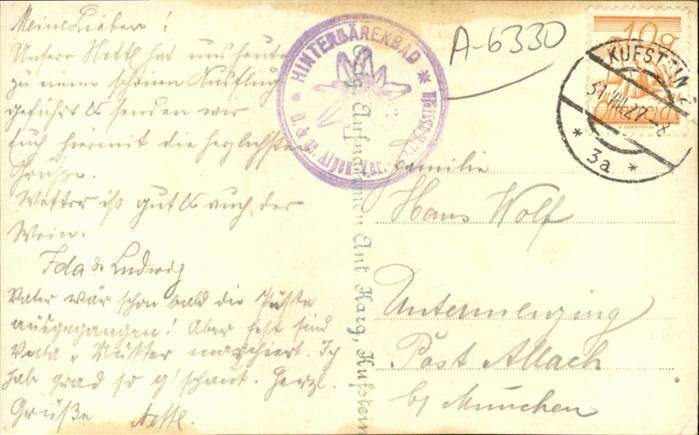 Meine Lieben!
Unsere Nettl hat uns heute
zu einem schönen Ausflug
geführt & senden wir
Euch hiermit die herzlichsten
Grüße.
Wetter ist gut & auch der
Wein.
Ida & Ludwig
Vater wär schon bald die Puste
ausgegangen! Aber fest sind
Vata u Mutter marschiert. Ich
hab grad so g'schaut. Herzl.
Grüße Nettl.
HINTERBÄRENBAD
D. & Ö. Alpen-Ver.
Orig. Aufnahmen Ant. Karg, Kufstein
A-6330
10g
KUFSTEIN
31.VIII.27
* 3a *
Familie
Hans Wolf
Untermenzing
Post Allach
b/ München